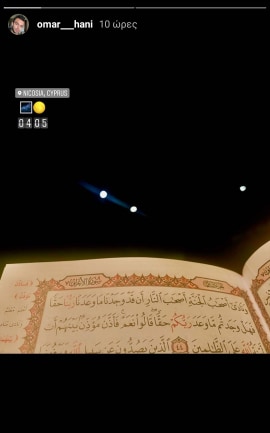 omar__hani 10 ώρες
NICOSIA, CYPRUS
04 05
وَنَادَىٰٓ أَصْحَٰبُ ٱلْجَنَّةِ أَصْحَٰبَ ٱلنَّارِ أَن قَدْ وَجَدْنَا مَا وَعَدَنَا رَبُّنَا حَقًّا
فَهَلْ وَجَدتُّم مَّا وَعَدَ رَبُّكُمْ حَقًّا قَالُوا۟ نَعَمْ فَأَذَّنَ مُؤَذِّنٌۢ بَيْنَهُمْ أَن
عَلَى ٱلظَّٰلِمِينَ ٤٤ ٱلَّذِينَ يَصُدُّونَ عَن